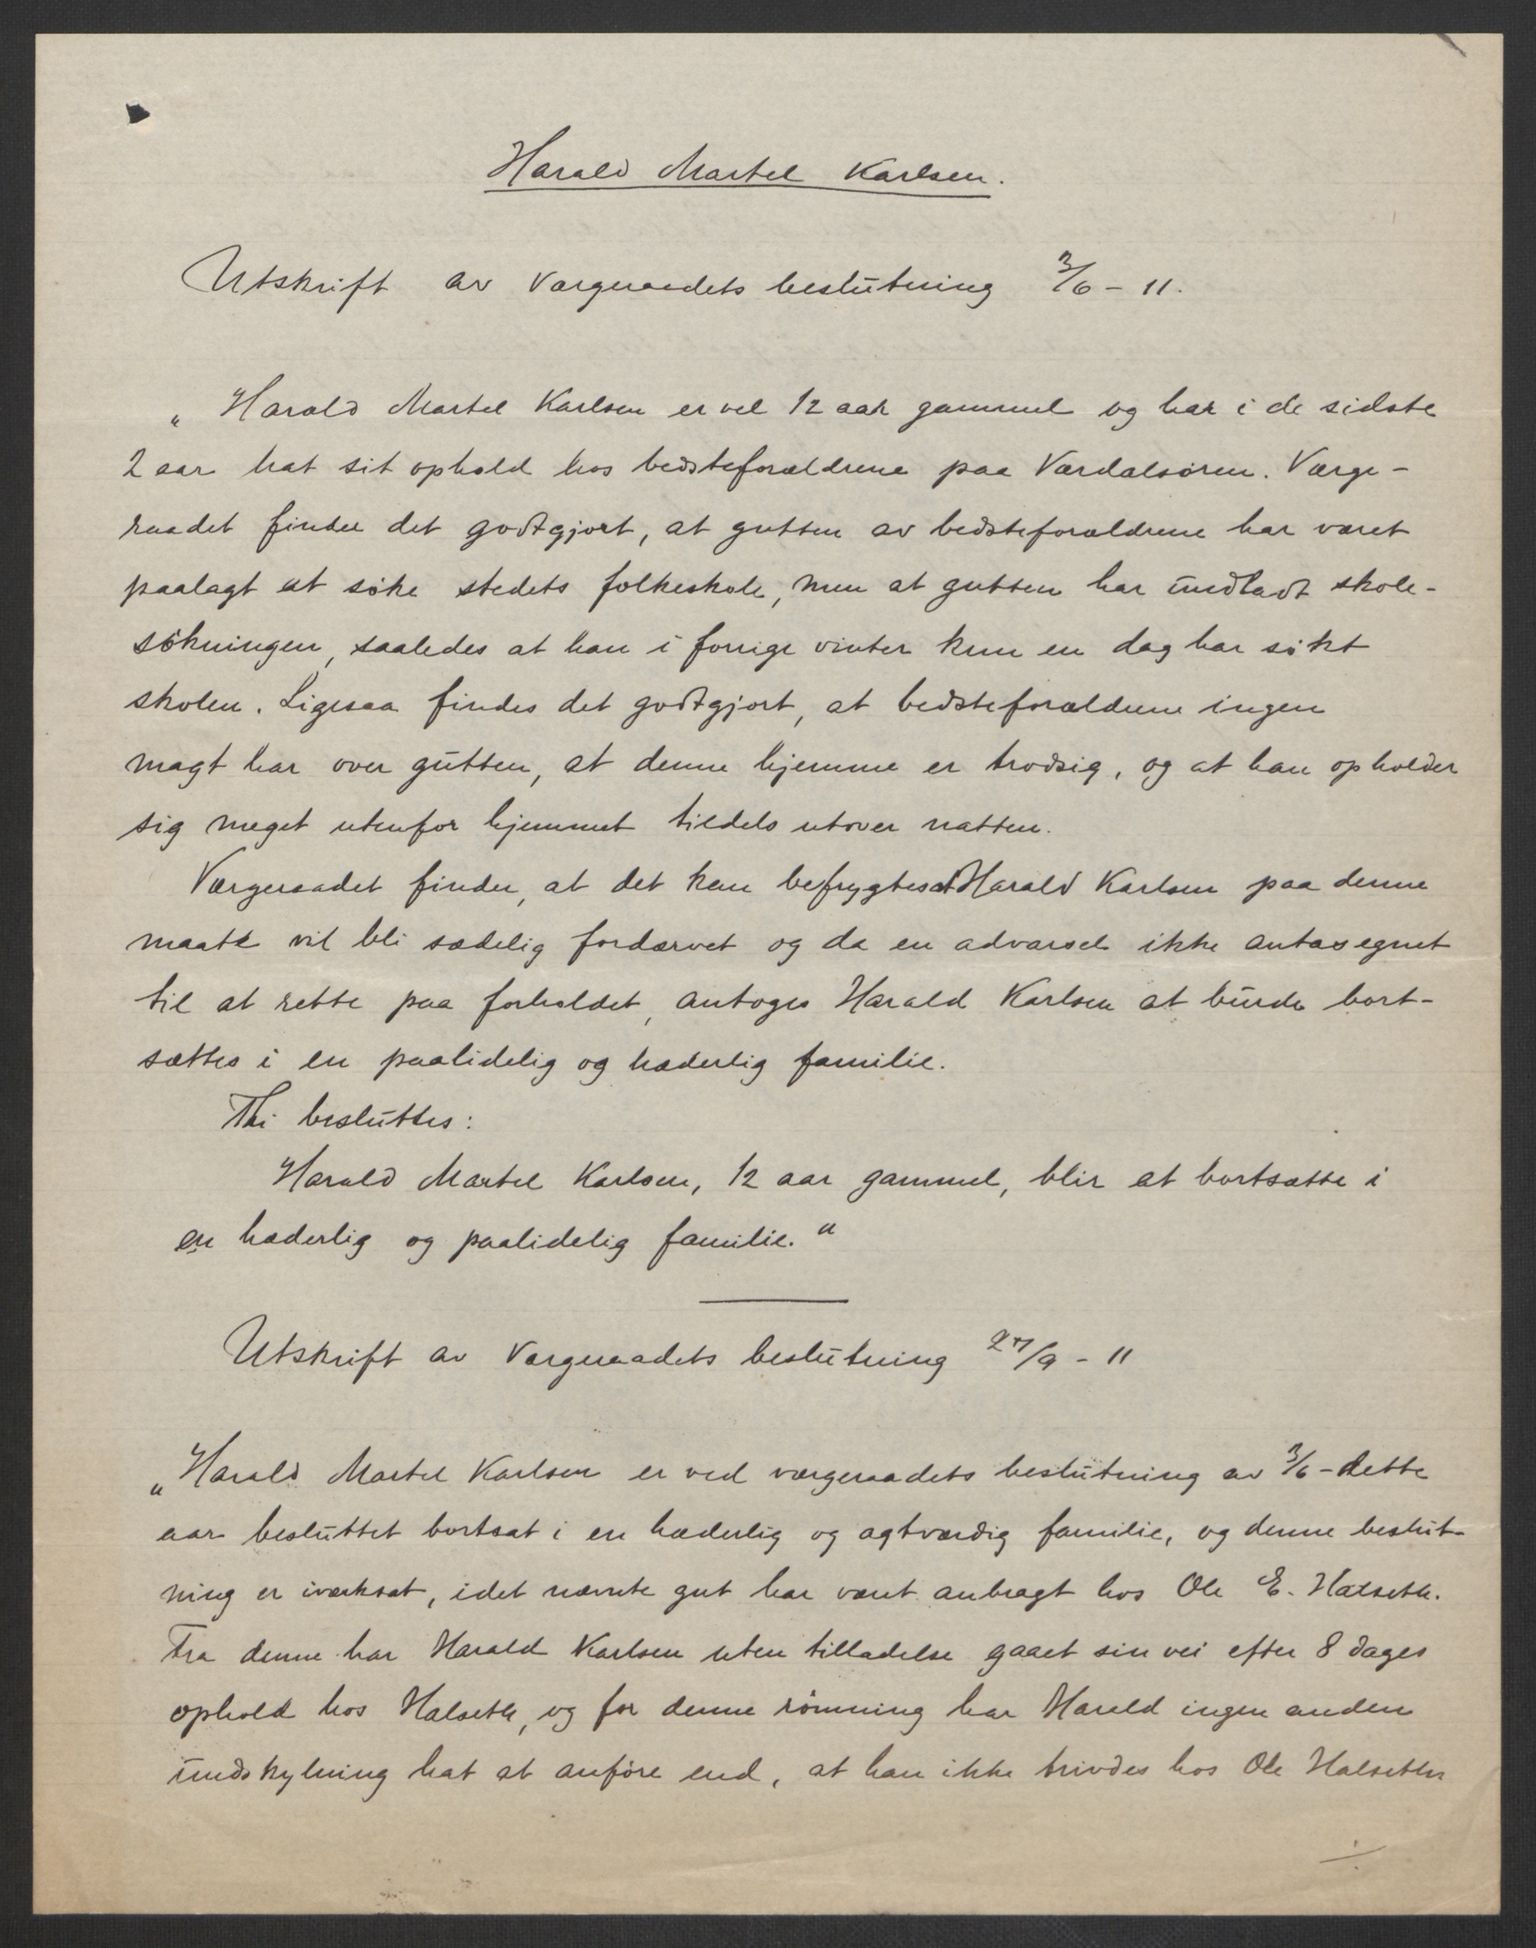 Harald Martel Karlsen.
Utskrift av Værgeraadets beslutning 3/6 - 11.
„ Harald Martel Karlsen er vel 12 aar gammel og har i de sidste
2 aar hat sit ophold hos bedsteforældrene paa Værdalsøren. Værge-
raadet finder det godtgjort, at gutten av bedsteforældrene har været
paalagt at søke stedets folkeskole, men at gutten har undladt skole-
søkningen, saaledes at han i forrige vinter kun en dag har søkt
skolen. Ligesaa findes det godtgjort, at bedsteforældrene ingen
magt har over gutten, at denne hjemme er trodsig, og at han opholder
sig meget utenfor hjemmet tildels utover natten.
Værgeraadet finder, at det kan befrygtes at Harald Karlsen paa denne
maate vil bli sædelig fordærvet og da en advarsel ikke antas egnet
til at rette paa forholdet, antoges Harald Karlsen at burde bort-
sættes i en paalidelig og hæderlig familie.
Thi besluttes:
Harald Martel Karlsen, 12 aar gammel, blir at bortsætte i
en hæderlig og paalidelig familie. "
Utskrift av Værgeraadets beslutning 27/9 - 11
„ Harald Martel Karlsen er ved værgeraadets beslutning av 3/6 - dette
aar besluttet bortsat i en hæderlig og agtværdig familie, og denne beslut-
ning er iverksat, idet nævnte gut har været anbragt hos Ole E. Halseth.
Fra denne har Harald Karlsen uten tilladelse gaaet sin vei efter 8 dages
ophold hos Halseth, og for denne rømning har Harald ingen anden
undskylning hat at anføre end, at han ikke trivdes hos Ole Halseth